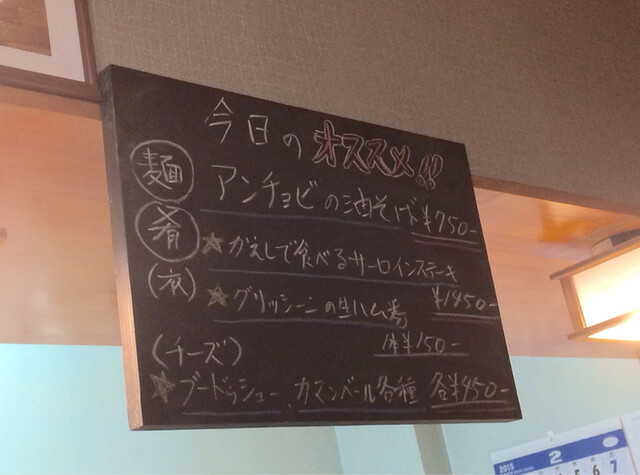 今日のオススメ!!
麺 アンチョビの油そば ¥750-
肴 ★かえしで食べるサーロインステーキ
¥1450-
(衣) ★グリッシーニの生ハム巻
1本¥150-
(チーズ)
★ブードゥシュー、カマンベール各種 各¥450-
2015 2
5 6 7